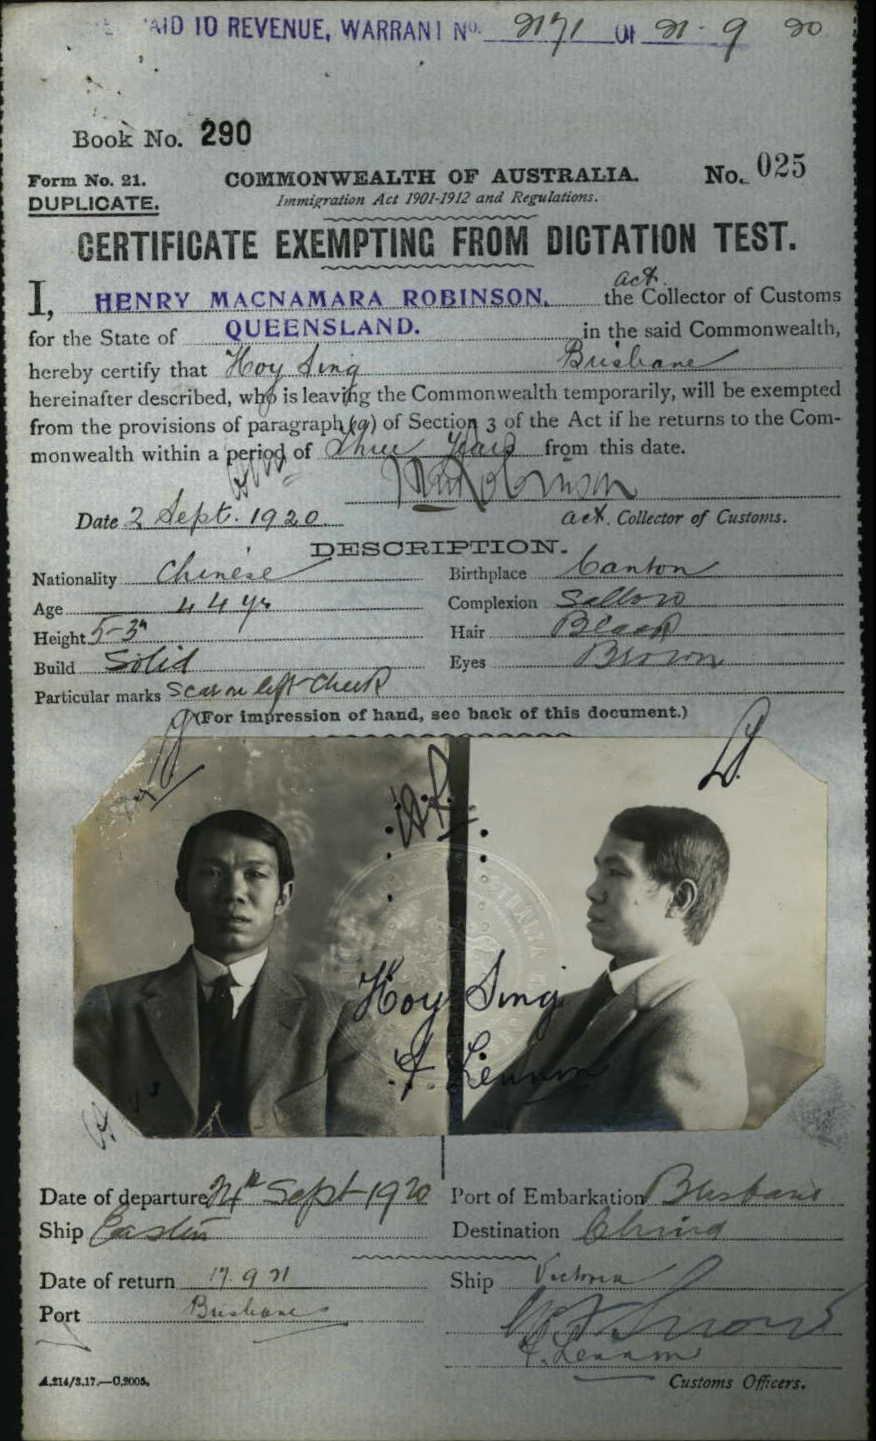 PAID TO REVENUE, WARRANT No. 2171 OF 21 - 9 20
Book No. 290
Form No. 21. COMMONWEALTH OF AUSTRALIA. No. 025
DUPLICATE. Immigration Act 1901-1912 and Regulations.
CERTIFICATE EXEMPTING FROM DICTATION TEST.
act.
I, HENRY MACNAMARA ROBINSON, the Collector of Customs
for the State of QUEENSLAND. in the said Commonwealth,
hereby certify that Hoy Sing Brisbane
hereinafter described, who is leaving the Commonwealth temporarily, will be exempted
from the provisions of paragraph (a) of Section 3 of the Act if he returns to the Com-
monwealth within a period of Three Years from this date.
Date 2 Sept. 1920 act. Collector of Customs.
DESCRIPTION.
Nationality Chinese Birthplace Canton
Age 44 yrs Complexion Sallow
Height 5-3" Hair Black
Build Solid Eyes Brown
Particular marks Scar on left cheek
(For impression of hand, see back of this document.)
Hoy Sing
F. Lennon
Date of departure Sept 1920 Port of Embarkation Brisbane
Ship Eastern Destination China
Date of return 17.9.21 Ship Victoria
Port Brisbane
F. Lennon
A.214/3.17.—C.9005. Customs Officers.